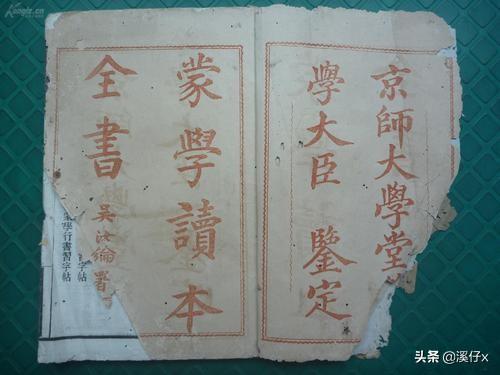 京師大學堂
學大臣 鑒定
蒙學讀本
全書
吳汝綸署
學行書習字帖
字帖
Kongfz.cn
头条 @溪仔x